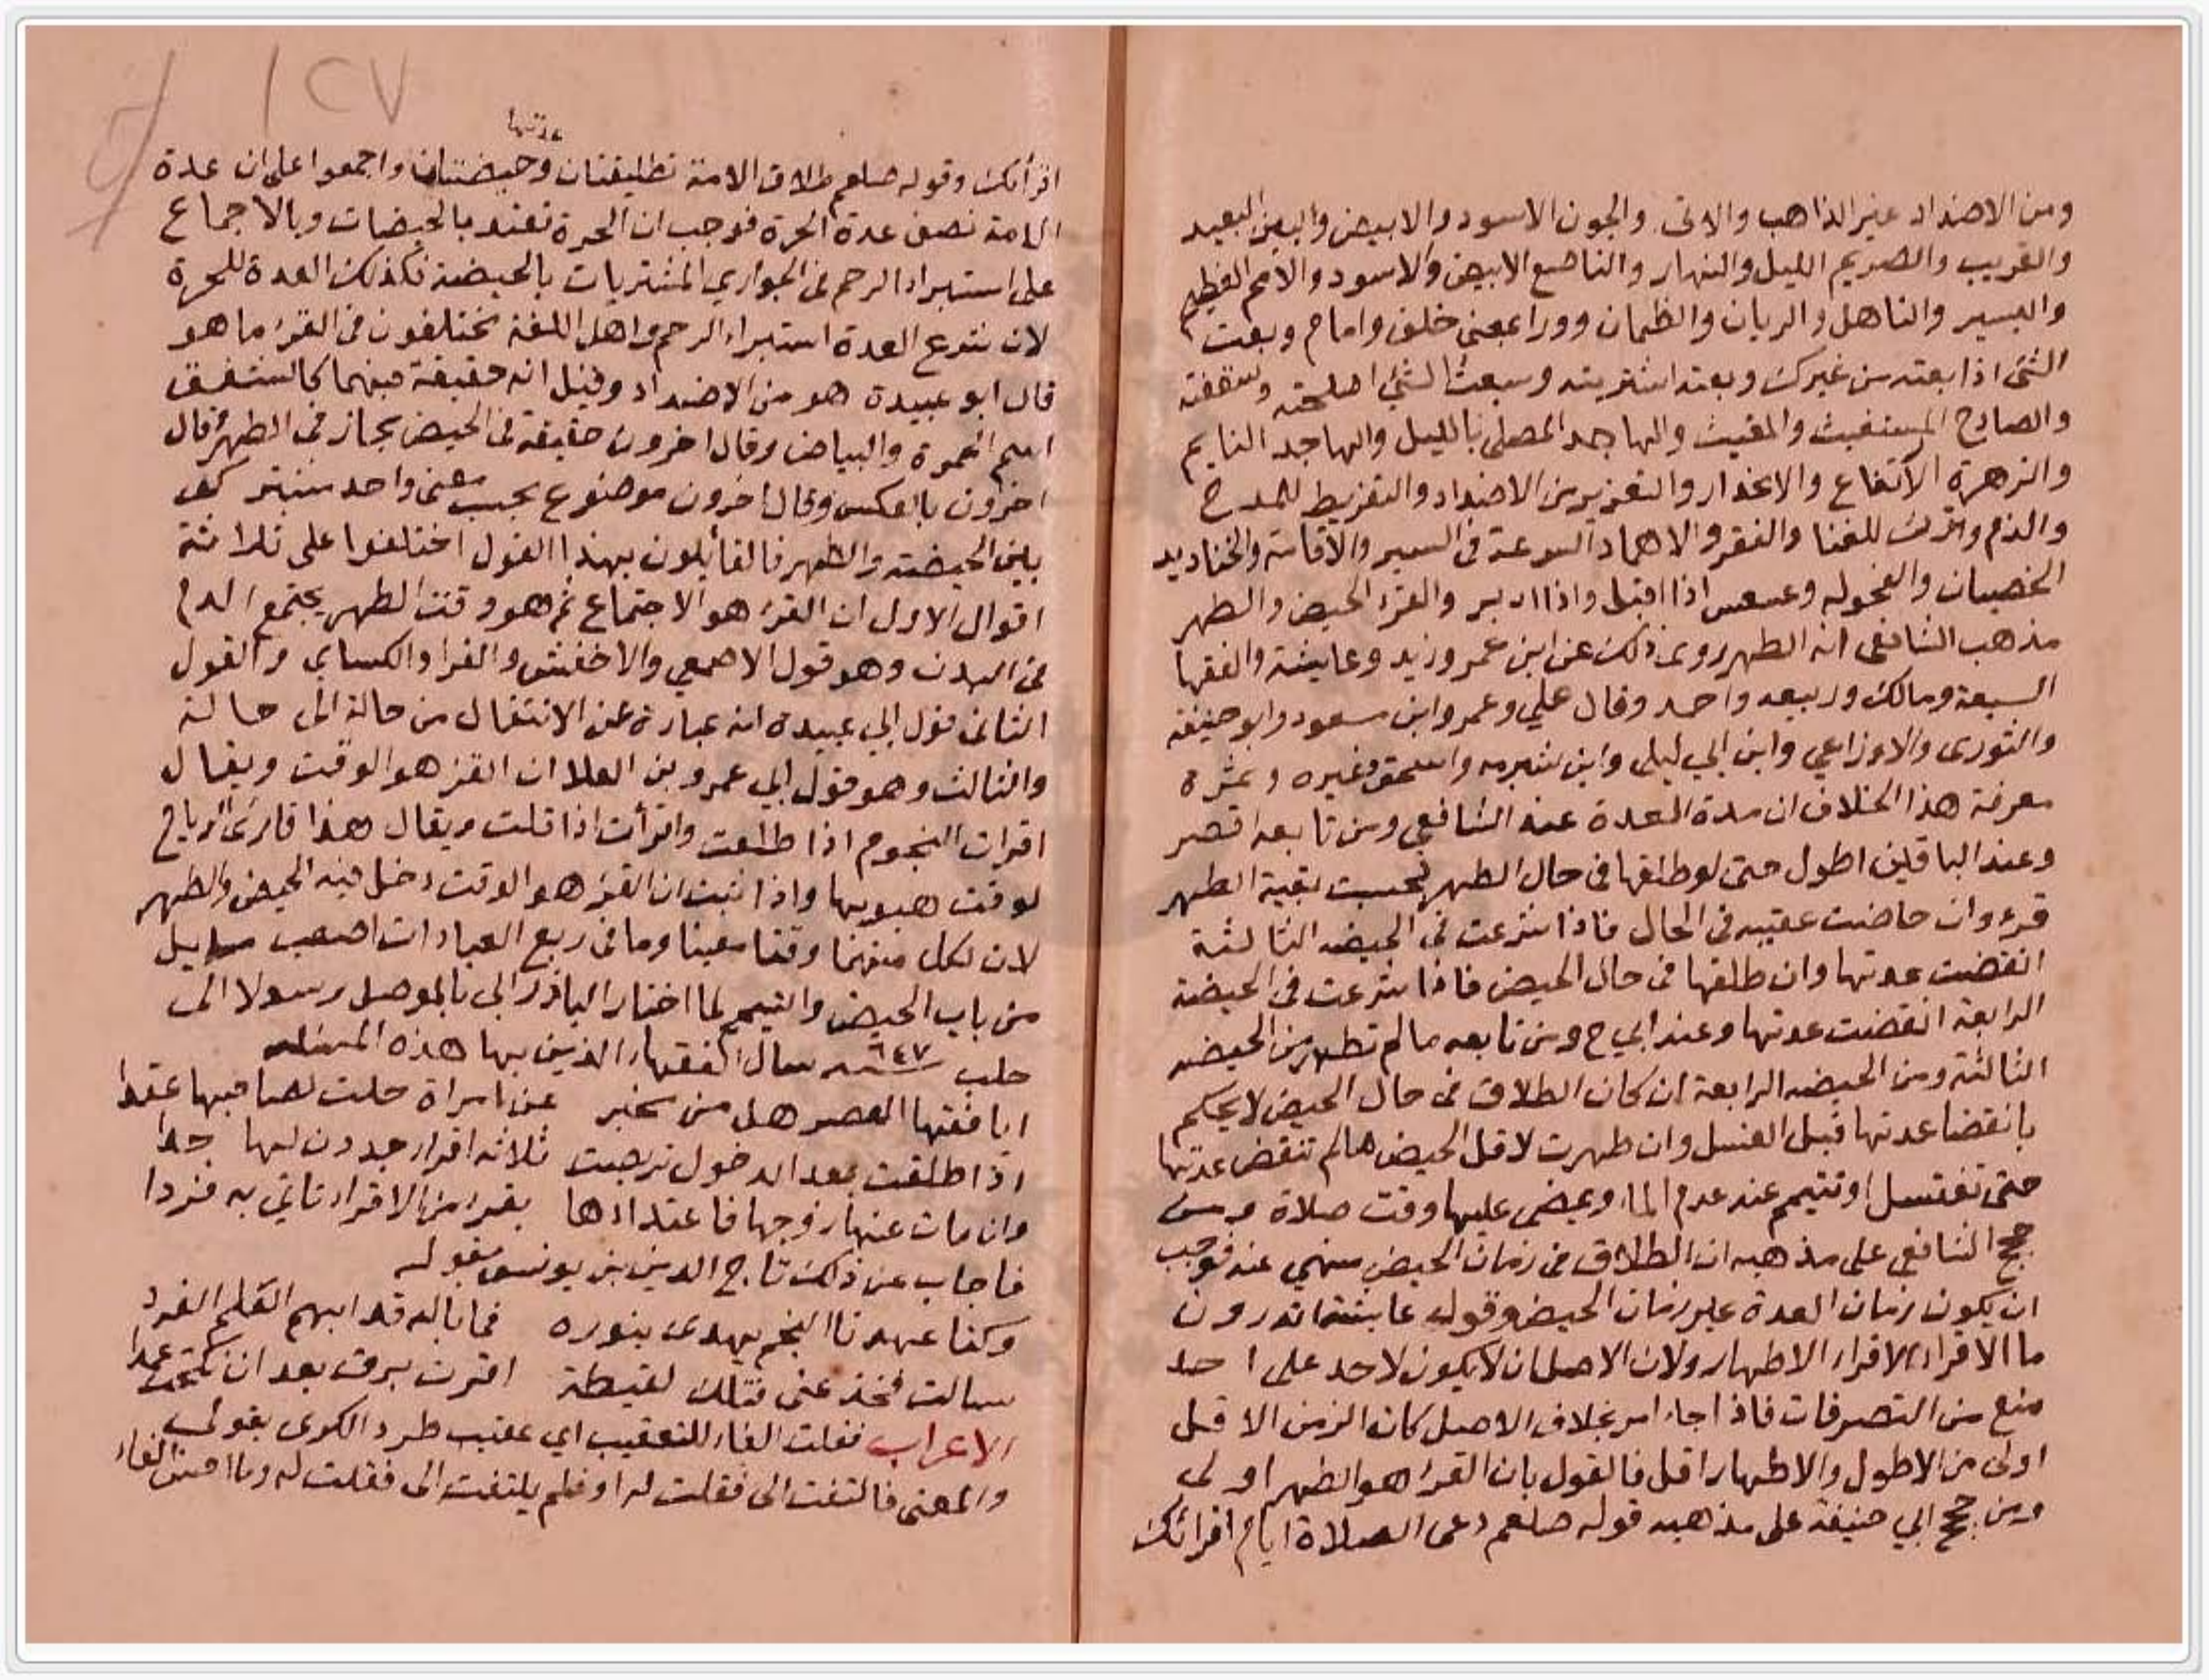 ومن الاضداد عنبر الذاهب والاتى والجون الاسود والابيض والبين البعيد
والقريب والصريم الليل والنهار والناصع الابيض والاسود والامم العظيم
واليسير والناهل الريان والظمان وورا بمعنى خلف وامام وبعت
الشئ اذا بعته من غيرك وبعته اشتريته وشعبت الشئ اصلحته وشققته
والصارخ المستغيث والمغيث والهاجد المصلى بالليل والهاجد النايم
والزهرة الارتفاع والانحدار والتعزير من الاضداد والتقريظ للمدح
والذم وترب للغنا والفقر والاهماد السرعة فى السير والاقامة والخناذيد
الخصيان والفحوله وعسعس اذا اقبل واذا ادبر والقرء الحيض والطهر
مذهب الشافعى انه الطهر روى ذلك عن ابن عمر وزيد وعايشة والفقها
السبعة ومالك وربيعه واحمد وقال علي وعمر وابن مسعود وابو حنيفه
والثورى والاوزاعي وابن ابي ليلى وابن شبرمه واسحق وغيره وثمرة
معرفة هذا الخلاف ان مدة العدة عند الشافعي ومن تابعه اقصر
وعند الباقين اطول حتى لو طلقها فى حال الطهر تحسب بقية الطهر
قرء وان حاضت عقيبه فى الحال فاذا شرعت فى الحيضه الثالثة
انقضت عدتها وان طلقها فى حال الحيض فاذا شرعت فى الحيضة
الرابعة انقضت عدتها وعند ابي ح ومن تابعه ما لم تطهر من الحيضه
الثالثة ومن الحيضه الرابعة ان كان الطلاق فى حال الحيض لا يحكم
بانقضا عدتها قبل الغسل وان طهرت لاقل الحيض مالم تنقض عدتها
حتى تغتسل او تتيمم عند عدم الما او يمضى عليها وقت صلاة ومن
حجج الشافعي على مذهبه ان الطلاق فى زمان الحيض منهي عنه فوجب
ان يكون زمان العدة غير زمان الحيض وقول عايشة اتدرون
ما الاقراء الاقراء الاطهار ولان الاصل ان لا يكون لاحد على احد
منع من التصرفات فاذا جاء امر بخلاف الاصل كان الزمن الاقل
اولى من الاطول والاطهار اقل فالقول بان القرء هو الطهر اولى
ومن حجج ابي حنيفة على مذهبه قوله صلعم دعى الصلاة ايام اقرائك
١٢٧
عدتها
اقرأئك وقوله صلعم طلاق الامة تطليقتان وحيضتان واجمعوا على ان عدة
الامة نصف عدة الحرة فوجب ان الحرة تعتد بالحيضات وبالاجماع
على استبراء الرحم فى الجواري المشتريات بالحيضة فكذلك العدة للحرة
لان شرع العدة استبراء الرحم واهل اللغة يختلفون فى القرء ما هو
قال ابو عبيدة هو من الاضداد وقيل انه حقيقة فيهما كالشفق
اسم الحمرة والبياض وقال اخرون حقيقة فى الحيض مجاز فى الطهر وقال
اخرون بالعكس وقال اخرون موضوع بحسب معنى واحد مشترك
بين الحيضة والطهر فالقايلون بهذا القول اختلفوا على ثلاثة
اقوال الاول ان القرء هو الاجتماع ثم هو وقت الطهر يجتمع الدم
فى البدن وهو قول الاصمعي والاخفش والفرا والكساي والقول
الثانى قول ابي عبيدة انه عبارة عن الانتقال من حالة الى حالة
والثالث وهو قول ابي عمرو بن العلا ان القرء هو الوقت ويقال
اقرات النجوم اذا طلعت واقرأت اذا قلت ويقال هذا قارئ الرياح
لوقت هبوبها واذا ثبت ان القرء هو الوقت دخل فيه الحيض والطهر
لان لكل منهما وقتا معينا وما فى ربع العبادات اصعب مسايل
من باب الحيض والتيمم لما اختار الباذرالى بالموصل رسولا الى
حلب سنة ٦٤٧ سال الفقهاء الذين بها هذه المسئله
ايا فقها العصر هل من مخبر عن امراة حلت لصاحبها عقدا
اذا طلقت بعد الدخول تربصت ثلاثه اقراء حددن لها حدا
وان مات عنها زوجها فاعتدادها بقرء من الاقراء تاتي به فردا
فاجاب عن ذلك تاج الدين بن يونس بقوله
وكنا عهدنا النجم يهدى بنوره فما باله قد ابهم العلم الفردا
سالت فخذ عنى فتلك لقيطة اقرت برق بعد ان نكحت عمدا
الاعراب فقلت الفاء للتعقيب اي عقيب طرد الكرى بقولى
والمعنى فالتفت الى فقلت له او فلم يلتفت الى فقلت له وما احسن الفاء